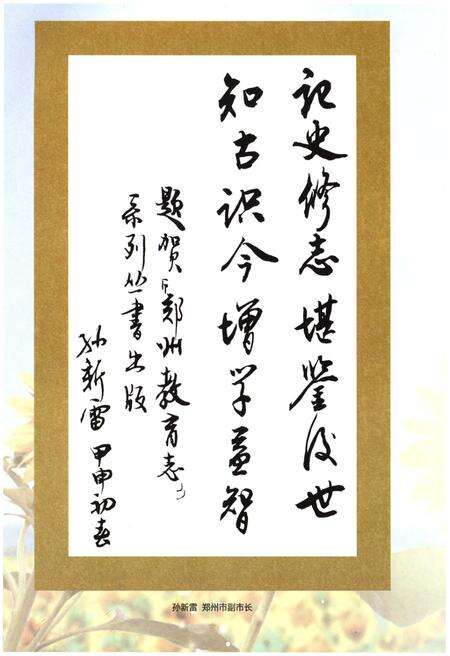 记史修志堪鉴后世
知古识今增学益智
题贺《郑州教育志》
系列丛书出版
孙新雷 甲申初春
孙新雷 郑州市副市长